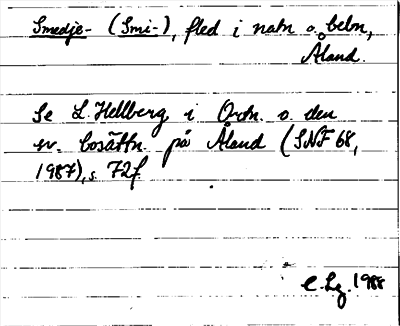 Smedje- (Smi-), fled i natn o. bebn,
Åland.
Se L. Hellberg i Ortn. o. den
sv. bosättn. på Åland (SNF 68,
1987), s. 72f
C. Lg. 1988